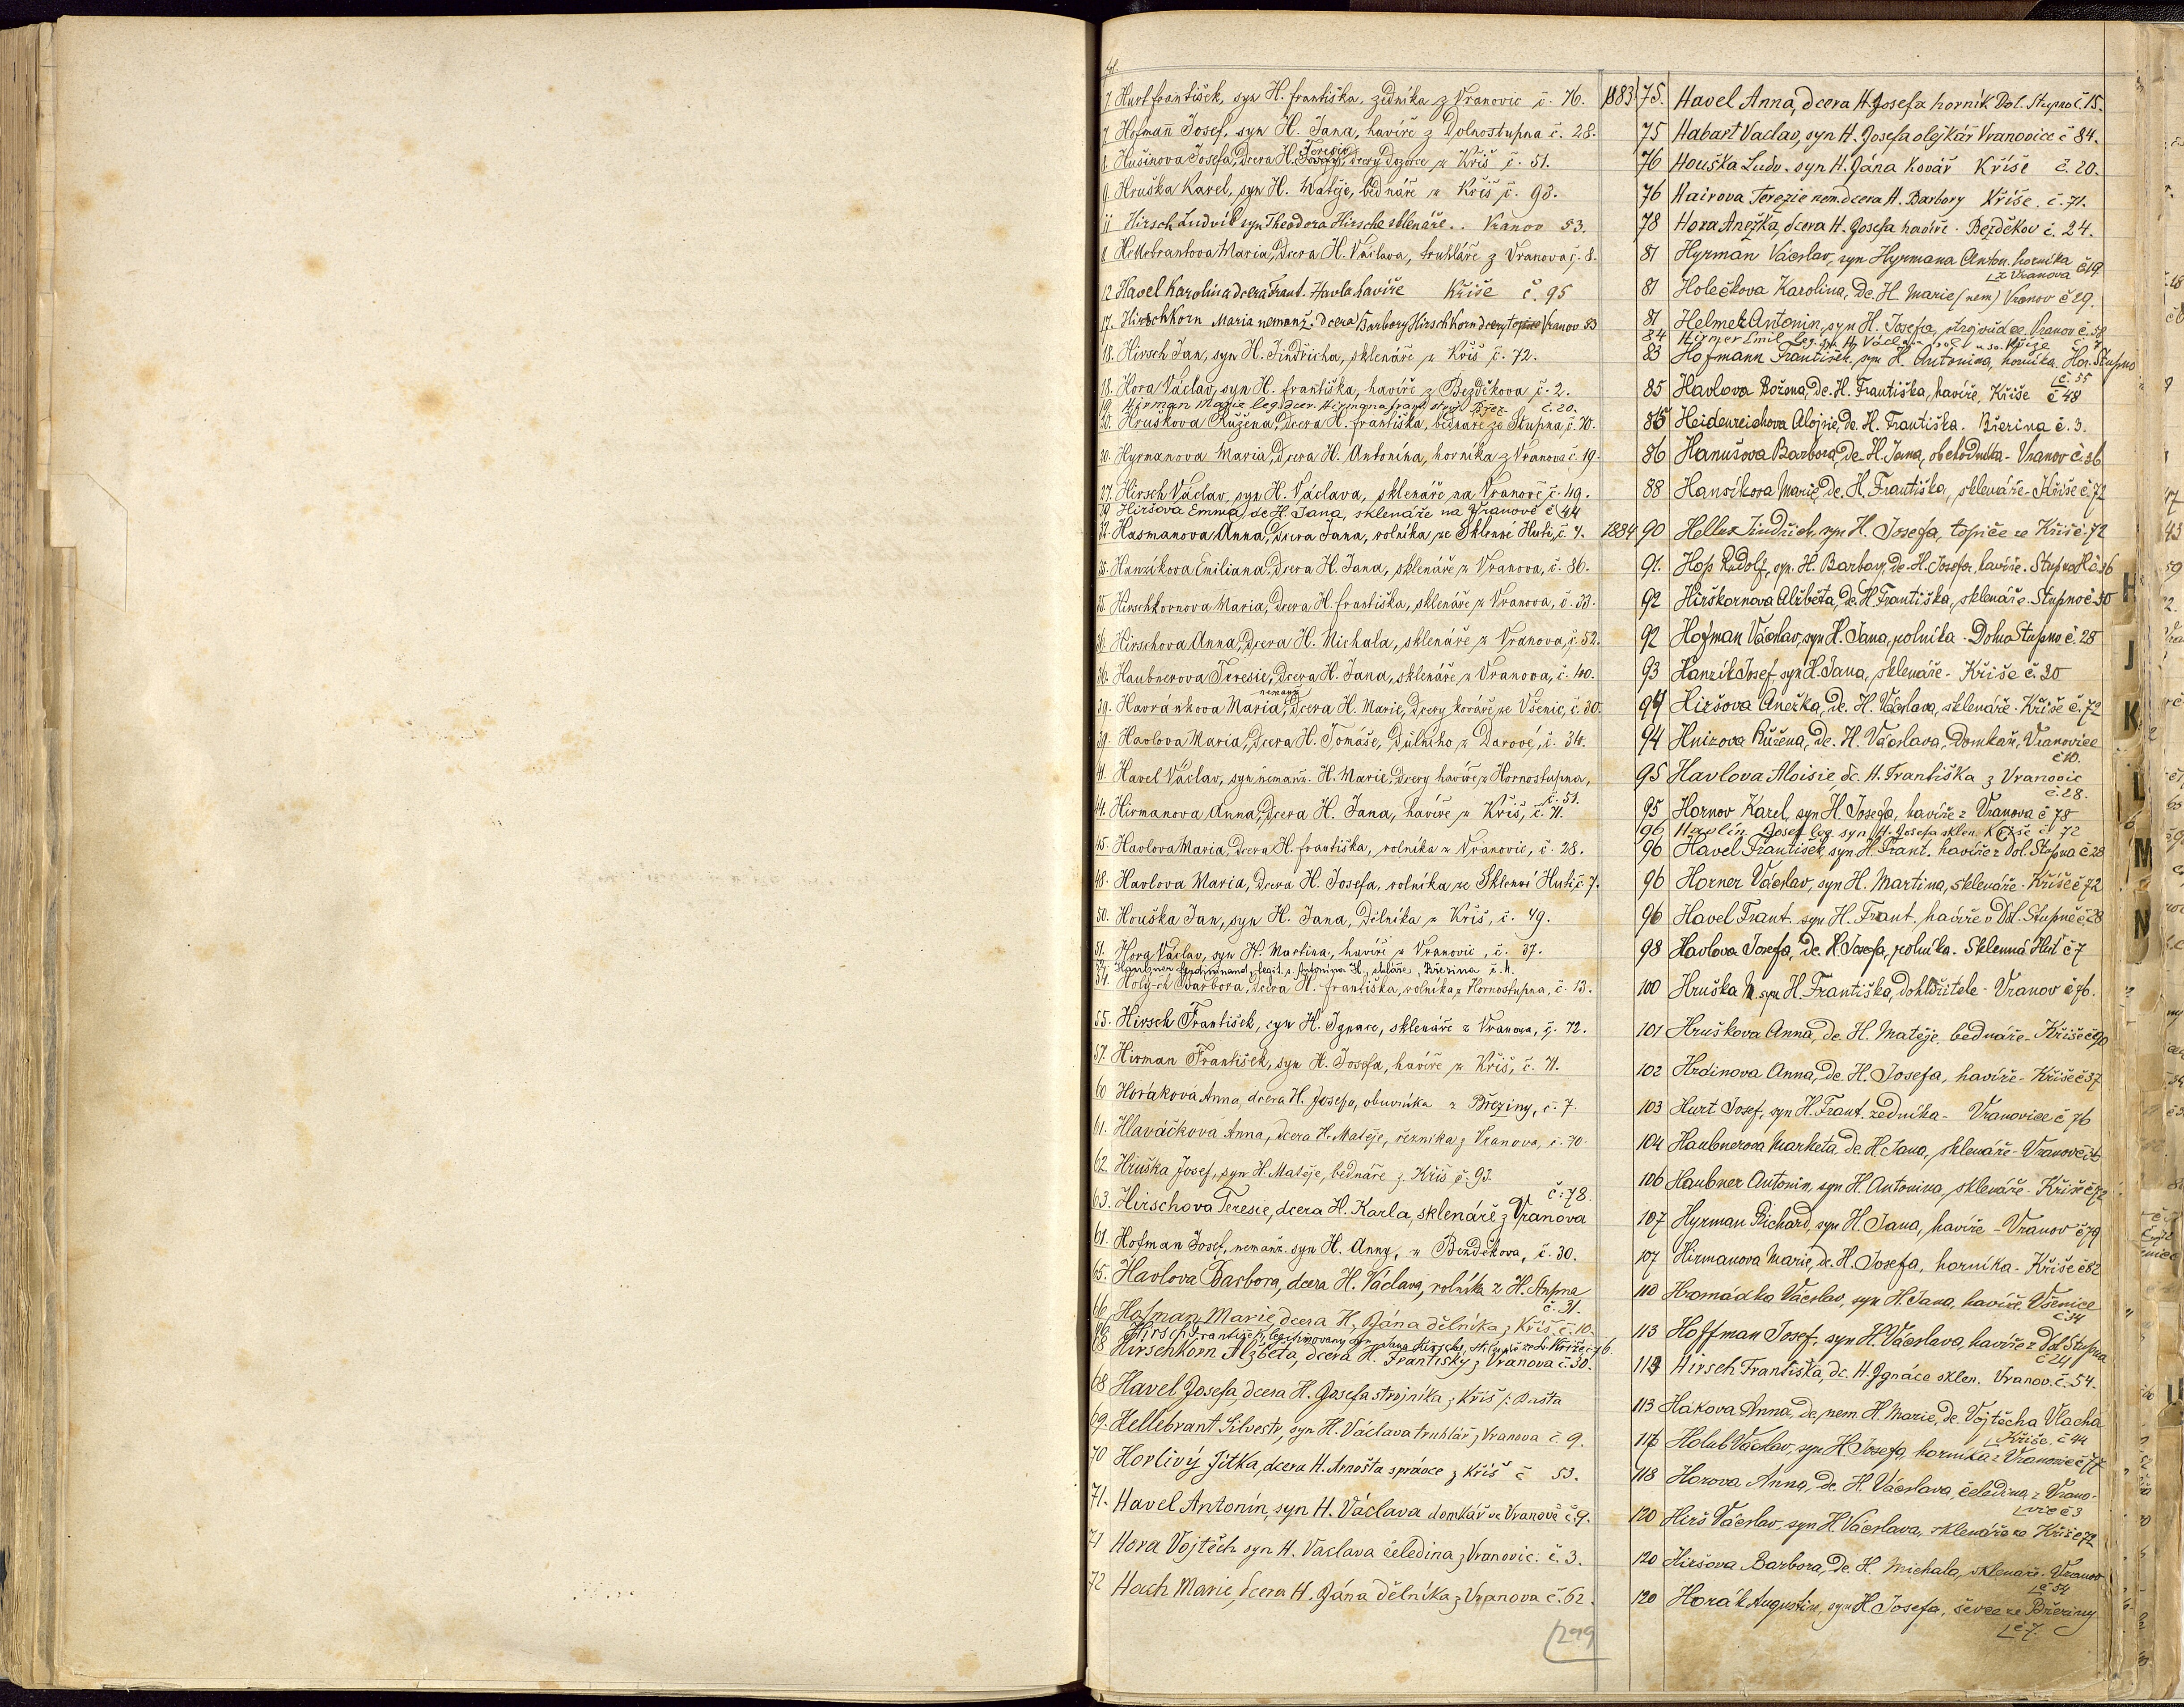 fol.
7 Hurt František, syn H. Františka, zedníka z Vranovic č. 76.
7 Hofmann Josef, syn H. Jana, havíře z Dolnostupna č. 28.
8. Hušinova Josefa, dcera H. Teresie, dcery dozorce z Kříš č. 51.
9. Hruška Karel, syn H. Matěje, bednáře z Kříš č. 93.
11 Hirsch Ludvík syn Theodora Hirsche sklenáře .. Vranov 53.
8 Hellebrantova Maria, dcera H. Václava, truhláře z Vranova č. 8.
12 Havel Karolina dcera Frant. Havla havíře Kříše č. 95
17. Hirschkorn Maria nemanž. dcera Barbory Hirschkorn dcery topiče Vranov 53
18. Hirsch Jan, syn H. Jindřicha, sklenáře z Kříš č. 72.
18. Hora Václav, syn H. Františka, havíře z Bezděkova č. 2.
19. Hirman Marie leg. dcer. Hirmana Frant. stroj. Břez. č. 20.
20. Hrušková Růžena, dcera H. Františka, bednáře ze Stupna, č. 70.
20. Hyrmanova Maria, dcera H. Antonína, horníka z Vranova č. 19.
27. Hirsch Václav, syn H. Václava, sklenáře na Vranově č. 49.
29 Hiršova Emma, dc H. Jana, sklenáře na Vranově č 44
32. Hasmanova Anna, dcera Jana, rolníka ze Sklenné Huti, č. 7.
35. Hanzíkova Emiliana, dcera H. Jana, sklenáře z Vranova, č. 86.
35. Hirschkornova Maria, dcera H. Františka, sklenáře z Vranova, č. 33.
36. Hirschova Anna, dcera H. Michala, sklenáře z Vranova, č. 52.
36. Haubnerova Teresie, dcera H. Jana, sklenáře z Vranova, č. 40.
39. Havránkova Maria, nemanž dcera H. Marie, dcery kováře ze Všenic, č. 30.
39. Havlova Maria, dcera H. Tomáše, dělního z Darové, č. 34.
41. Havel Václav, syn nemanž. H. Marie, dcery havíře z Hornostupna, č. 51.
44. Hirmanova Anna, dcera H. Jana, havíře z Kříš, č. 71.
45. Havlova Maria, dcera H. Františka, rolníka z Vranovic, č. 28.
48. Havlova Maria, dcera H. Josefa, rolníka ze Sklenné Huti č. 7.
50. Houška Jan, syn H. Jana, dělníka z Kříš, č. 49.
51. Hora Václav, syn H. Martina, havíře z Vranovic, č. 37.
52. Haubner Ferdinand, legit. s. Antonína H., skláře, Březina č. 4.
54. Holých Barbora, dcera H. Františka, rolníka z Hornostupna, č. 13.
55. Hirsch František, syn H. Ignace, sklenáře z Vranova, č. 72.
57. Hirman František, syn H. Josefa, havíře z Kříš, č. 71.
60 Horáková Anna, dcera H. Josefa, obuvníka z Březiny, č. 7.
61. Hlaváčková Anna, dcera H. Matěje, řezníka z Vranova, č. 70.
62. Hruška Josef, syn H. Matěje, bednáře z Kříš č. 93.
63. Hirschova Teresie, dcera H. Karla, sklenáře z Vranova č. 78.
61. Hofman Josef, nemanž. syn H. Anny, z Bezděkova, č. 30.
65. Havlova Barbora, dcera H. Václava, rolníka z H. Stupna č. 31.
66. Hofman Marie, dcera H. Jána dělníka z Kříš č. 10.
66 Hirsch František, legitimovaný syn Jana Hirsche,
68 Hirschkorn Alžběta, dcera H. Františky z Vranova č. 30.
68 Havel Josefa, dcera H. Josefa strojníka z Kříš
69. Hellebrant Silvestr, syn H. Václava truhlář z Vranova č. 9.
70 Horlivý Jitka, dcera H. Arnošta správce z Kříš č 53.
71. Havel Antonín, syn H. Václava domkář ve Vranově č. 9.
71 Hora Vojtěch syn H. Vaclava čeledína z Vranovic. č. 3.
72 Hach Marie, dcera H. Jána dělníka z Vranova č. 62.
299
1883 75. Havel Anna, dcera H. Josefa horník Dol. Stupno č. 15.
75 Habart Vaclav, syn H. Josefa olejkář Vranovice č 84.
76 Houška Ludv. syn H. Jána kovář Kříše č. 20.
76 Hairova Terezie nem. dcera H. Barbory Kříše. č. 71.
78 Hora Anežka, dcera H. Josefa havíře. Bezděkov č. 24.
81 Hyrman Václav, syn Hyrmana Anton. horníka z Vranova č 19
81 Holečkova Karolina, dc. H. Marie (nem) Vranov č 29.
81 Helmek Antonin, syn H. Josefa, strojvůdce Vranov č. 58
84 Hirmer Emil leg. syn H. Václava
83 Hofmann František, syn H. Antonina, horníka. Hor. Stupno č. 55
85 Havlova Božena, dc. H. Františka, havíře, Kříše č 48
85 Heidenreichova Aloisie, dc. H. Františka. Březina č. 3.
86 Hanušova Barbora, dc H. Jana, obchodníka - Vranov č 36
88 Hansíkova Marie, dc. H. Františka, sklenáře - Kříše č. 72
1884 90 Heller Jindřich, syn H. Josefa, topiče ze Kříš č. 72
91. Hos Rudolf, syn H. Barbory, dc. H. Josefa, havíře. Stupno H č 36
92 Hirškornova Alžběta, dc. H. Františka, sklenáře. Stupno č 50
92 Hofman Václav, syn H. Jana, rolníka - Dolno Stupno č. 28
93 Hanzík Josef, syn H. Jana, sklenáře - Kříše č. 30
94 Hiršova Anežka, dc. H. Václava, sklenáře - Kříše č. 72
94 Hnizova Růžena, dc. H. Václava, Domkař, Vranovice č 10.
95 Havlova Aloisie dc. H. Františka z Vranovic č. 28.
95 Hornov Karel, syn H. Josefa, havíře z Vranova č 78
96 Havlín Josef leg. syn H. Josefa sklen. Kříše č 72
96 Havel František, syn H. Frant. havíře z Dol. Stupna č 28
96 Horner Václav, syn H. Martina, sklenáře - Kříše č 72
96 Havel Frant. syn H. Frant. havíře v Dol. Stupně č. 28
98 Havlova Josefa, dc. H. Josefa, rolníka. Sklenná Huť č 7
100 Hruška syn H. Františka, dohližitele - Vranov č 76.
101 Hruškova Anna, dc. H. Matěje, bednáře - Kříše č 90
102 Hrdinova Anna, dc. H. Josefa, havíře - Kříše č 37
103 Hurt Josef, syn H. Frant. zedníka - Vranovice č 76
104 Haubnerova Marketa dc. H. Jana, sklenáře - Vranov č 36
106 Haubner Antonin, syn H. Antonina, sklenáře - Kříše č 72
107 Hyrman Richard, syn H. Jana, havíře - Vranov č 79
107 Hirmanova Marie, dc. H. Josefa, horníka - Kříše č 82
110 Hromádka Václav, syn H. Jana, havíře. Všenice č 34
113 Hoffman Josef, syn H. Václava, havíře z Dol Stupna č 24
113 Hirsch Františka, dc. H. Ignáce sklen. Vranov č. 54.
113 Hákova Anna, dc, nem. H. Marie, dc Vojtěcha Vlacha Kříše, č 44
116 Holub Václav, syn H. Josefa, horníka z Vranovic č 77
118 Horova Anna, dc. H. Václava, čeledína z Vranovic č 3
120 Hirš Václav, syn H. Václava, sklenáře ze Kříše č 72
120 Hiršova Barbora, dc. H. Michala, sklenáře - Vranov č 54
120 Horák Augustin, syn H. Josefa, ševce ze Březiny č. 7.
H
J
K
L
M
N
U